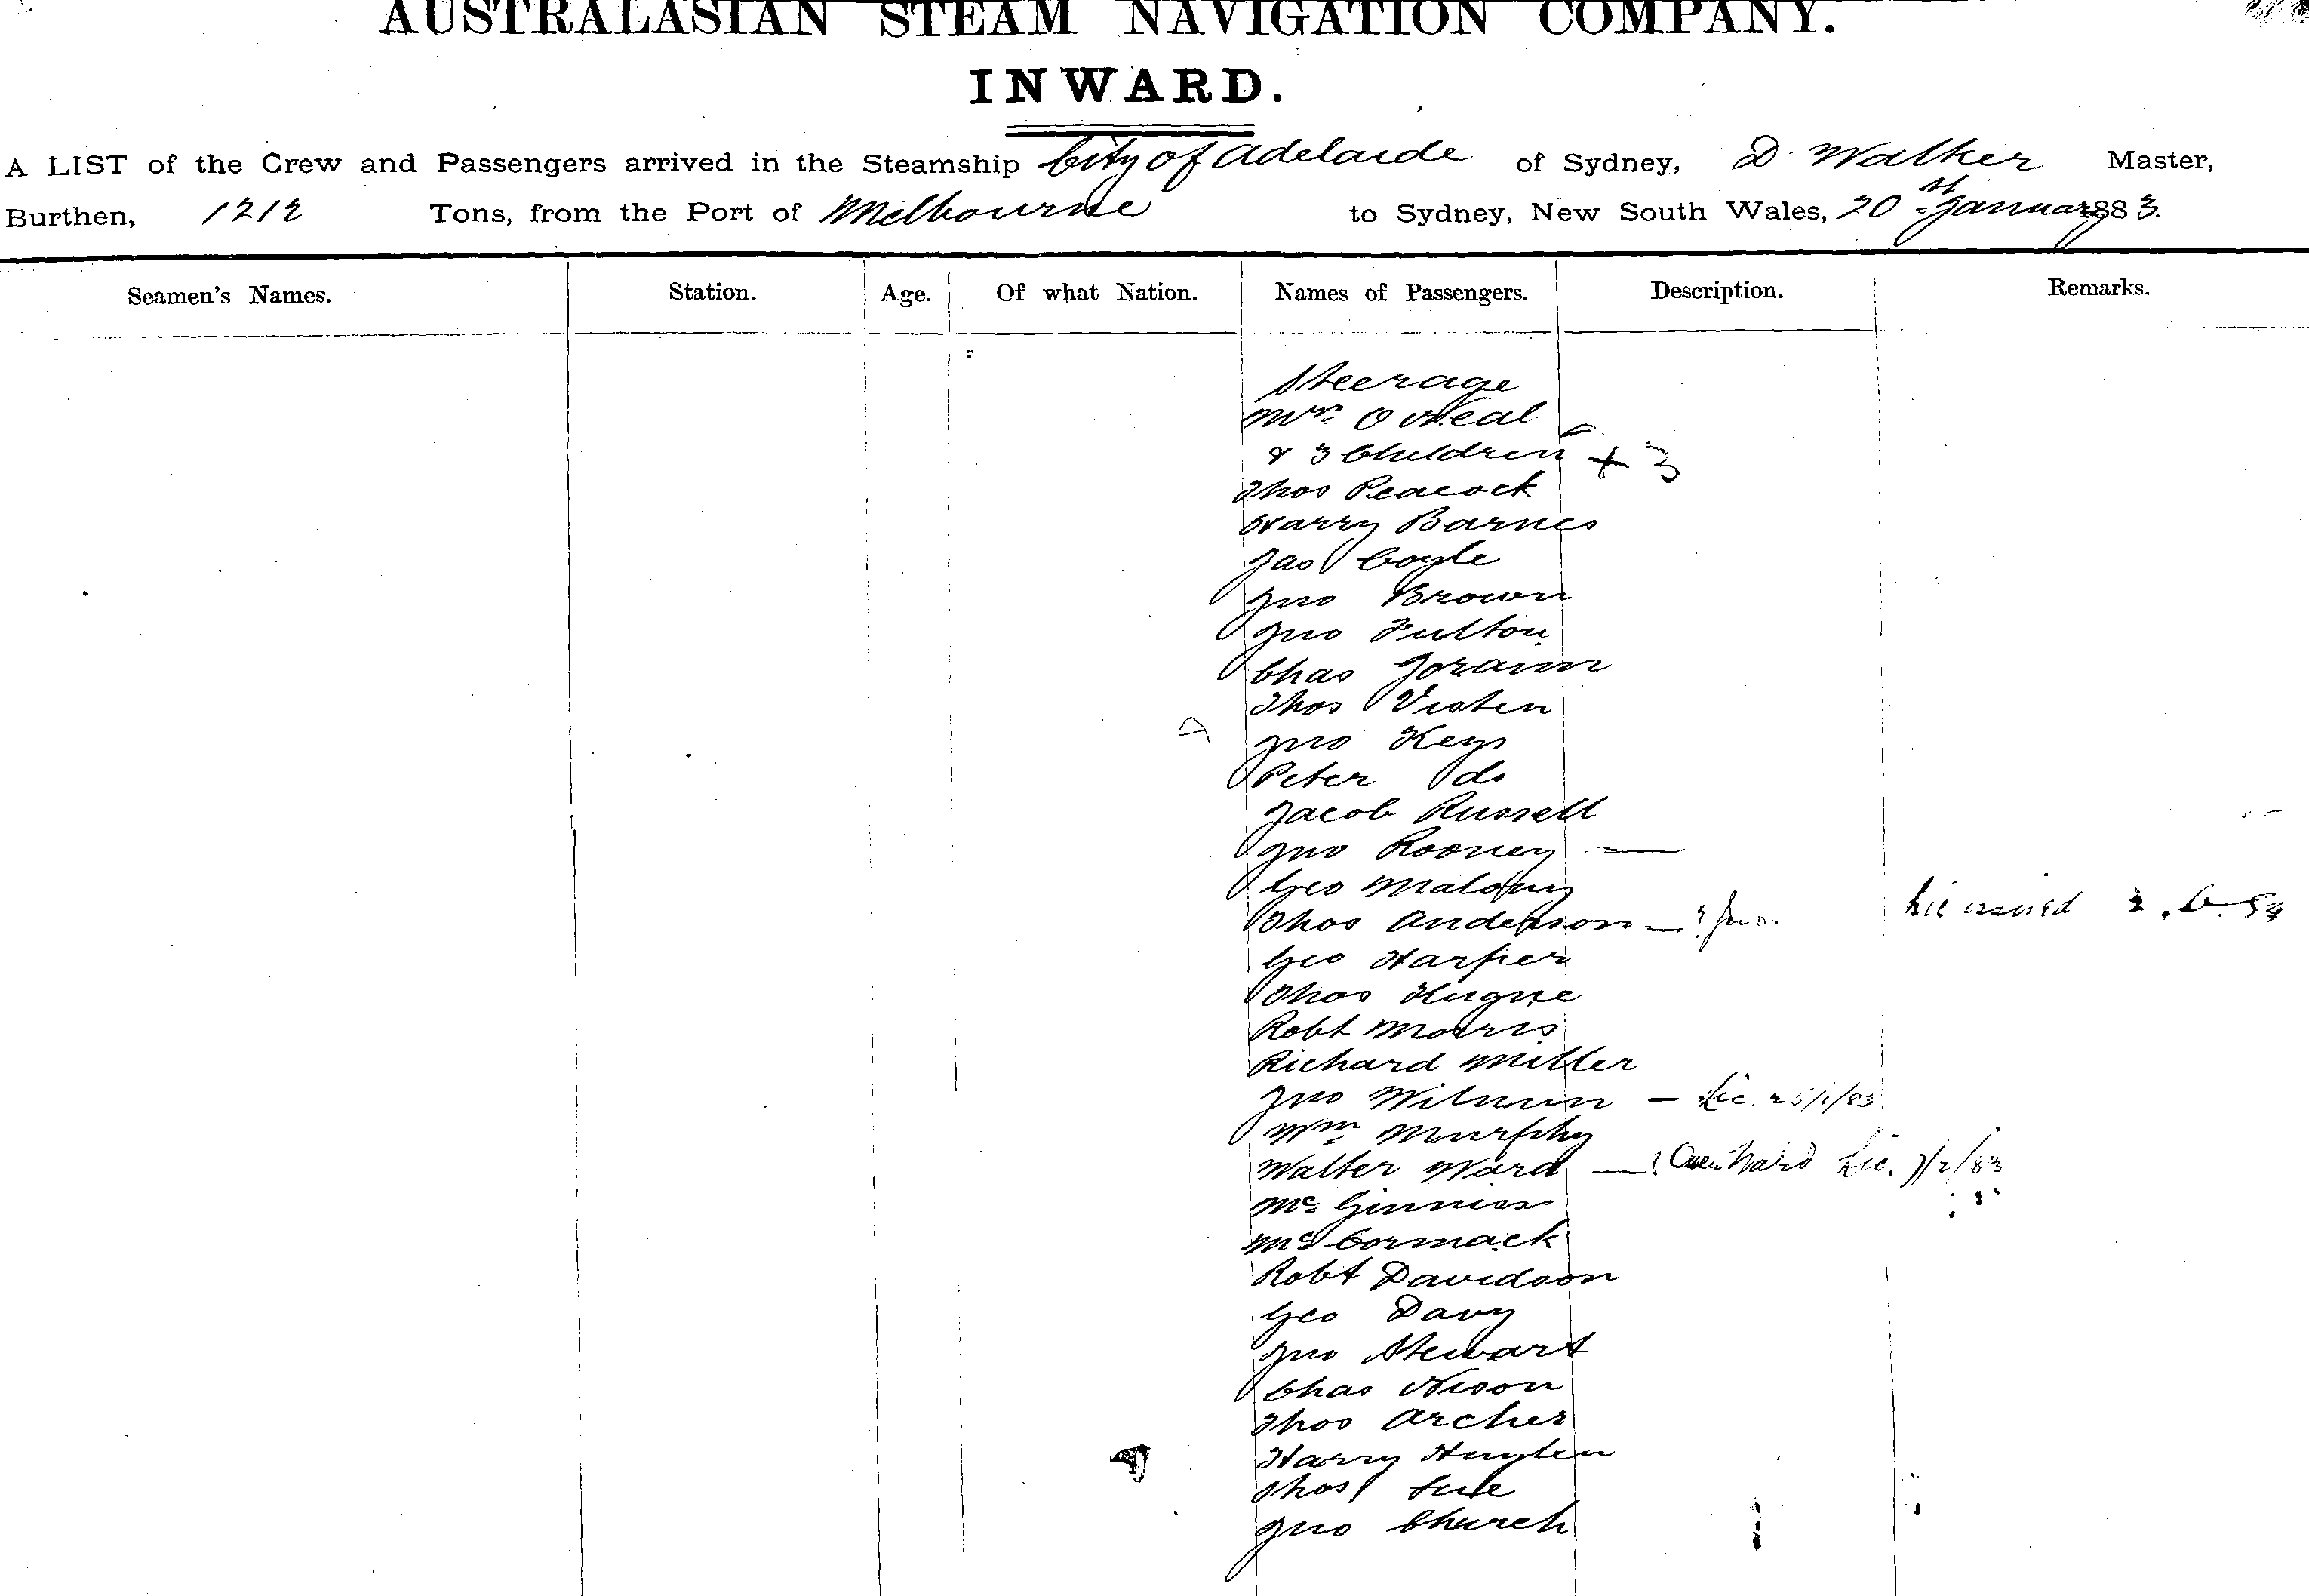 AUSTRALASIAN STEAM NAVIGATION COMPANY.
INWARD.
A LIST of the Crew and Passengers arrived in the Steamship City of Adelaide of Sydney, D. Walker Master,
Burthen, 1212 Tons, from the Port of Melbourne to Sydney, New South Wales, 20 st January 1883.
Seamen's Names. Station. Age. Of what Nation. Names of Passengers. Description. Remarks.
Steerage
Mrs. O Neal
& 3 Children + 3
Thos Peacock
Harry Barnes
Jas Coyle
Jno Brown
Jno Fulton
Chas
Thos
Jno Keys
Peter do
Jacob Russell
Jno Rooney —
Geo Malony
Thos Anderson — ? Jno. Lic issued 2.6.
Geo Harper
Thos
Robt Morris
Richard Miller
Jno — Lic. 25/1/83
Wm Murphy
Walter Ward — ? Owen Ward Lic. 7/2/83
Mc Ginniss
McCormack
Robt Davidson
Geo Davy
Jno Stewart
Chas Nison
Thos Archer
Harry
Thos
Jno Church